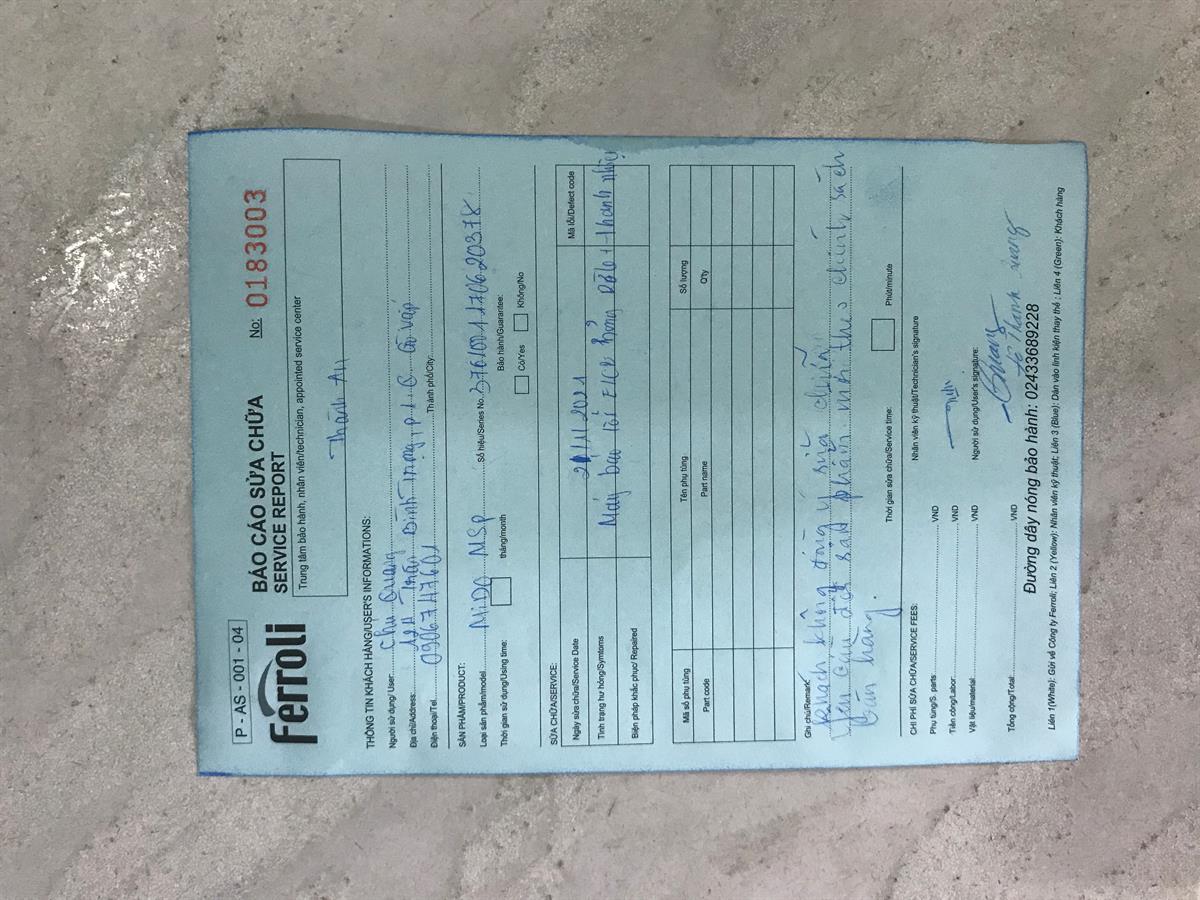 P - AS - 001 - 04
Ferroli
BÁO CÁO SỬA CHỮA
SERVICE REPORT
No: 0183003
Trung tâm bảo hành, nhân viên/technician, appointed service center
Thành An
THÔNG TIN KHÁCH HÀNG/USER'S INFORMATIONS:
Người sử dụng/ User: Chu Quang
Địa chỉ/Address: Trần Bình Trọng, p.1.Q Gò vấp
Điện thoại/Tel. 0906747601 Thành phố/City:
SẢN PHẨM/PRODUCT:
Loại sản phẩm/model MiDO NSp Số hiệu/Series No. 3761001170620378
Thời gian sử dụng/Using time: tháng/month Bảo hành/Guarantee: Có/Yes Không/No
SỬA CHỮA/SERVICE:
Ngày sửa chữa/Service Date 21/1/2021 Mã lỗi/Defect code
Tình trạng hư hỏng/Symtoms Máy báo lỗi ELCB hỏng Rơle + thanh nhiệt
Biện pháp khắc phục/ Repaired
Mã số phụ tùng Tên phụ tùng Số lượng
Part code Part name Q'ty
Ghi chú/Remark
khách không đồng ý sửa chữa
yêu cầu đổi sản phẩm mới theo chính sách
bán hàng.
Thời gian sửa chữa/Service time: Phút/minute
CHI PHÍ SỬA CHỮA/SERVICE FEES: Nhân viên kỹ thuật/Technician's signature
Phụ tùng/S. parts: VND
Tiền công/Labor: VND
Vật liệu/material: VND Người sử dụng/User's signature:
Quang
Tổng cộng/Total: VND
Đường dây nóng bảo hành: 02433689228
Liên 1(White): Gửi về Công ty Ferroli; Liên 2 (Yellow): Nhân viên kỹ thuật; Liên 3 (Blue): Dán vào linh kiện thay thế ; Liên 4 (Green): Khách hàng